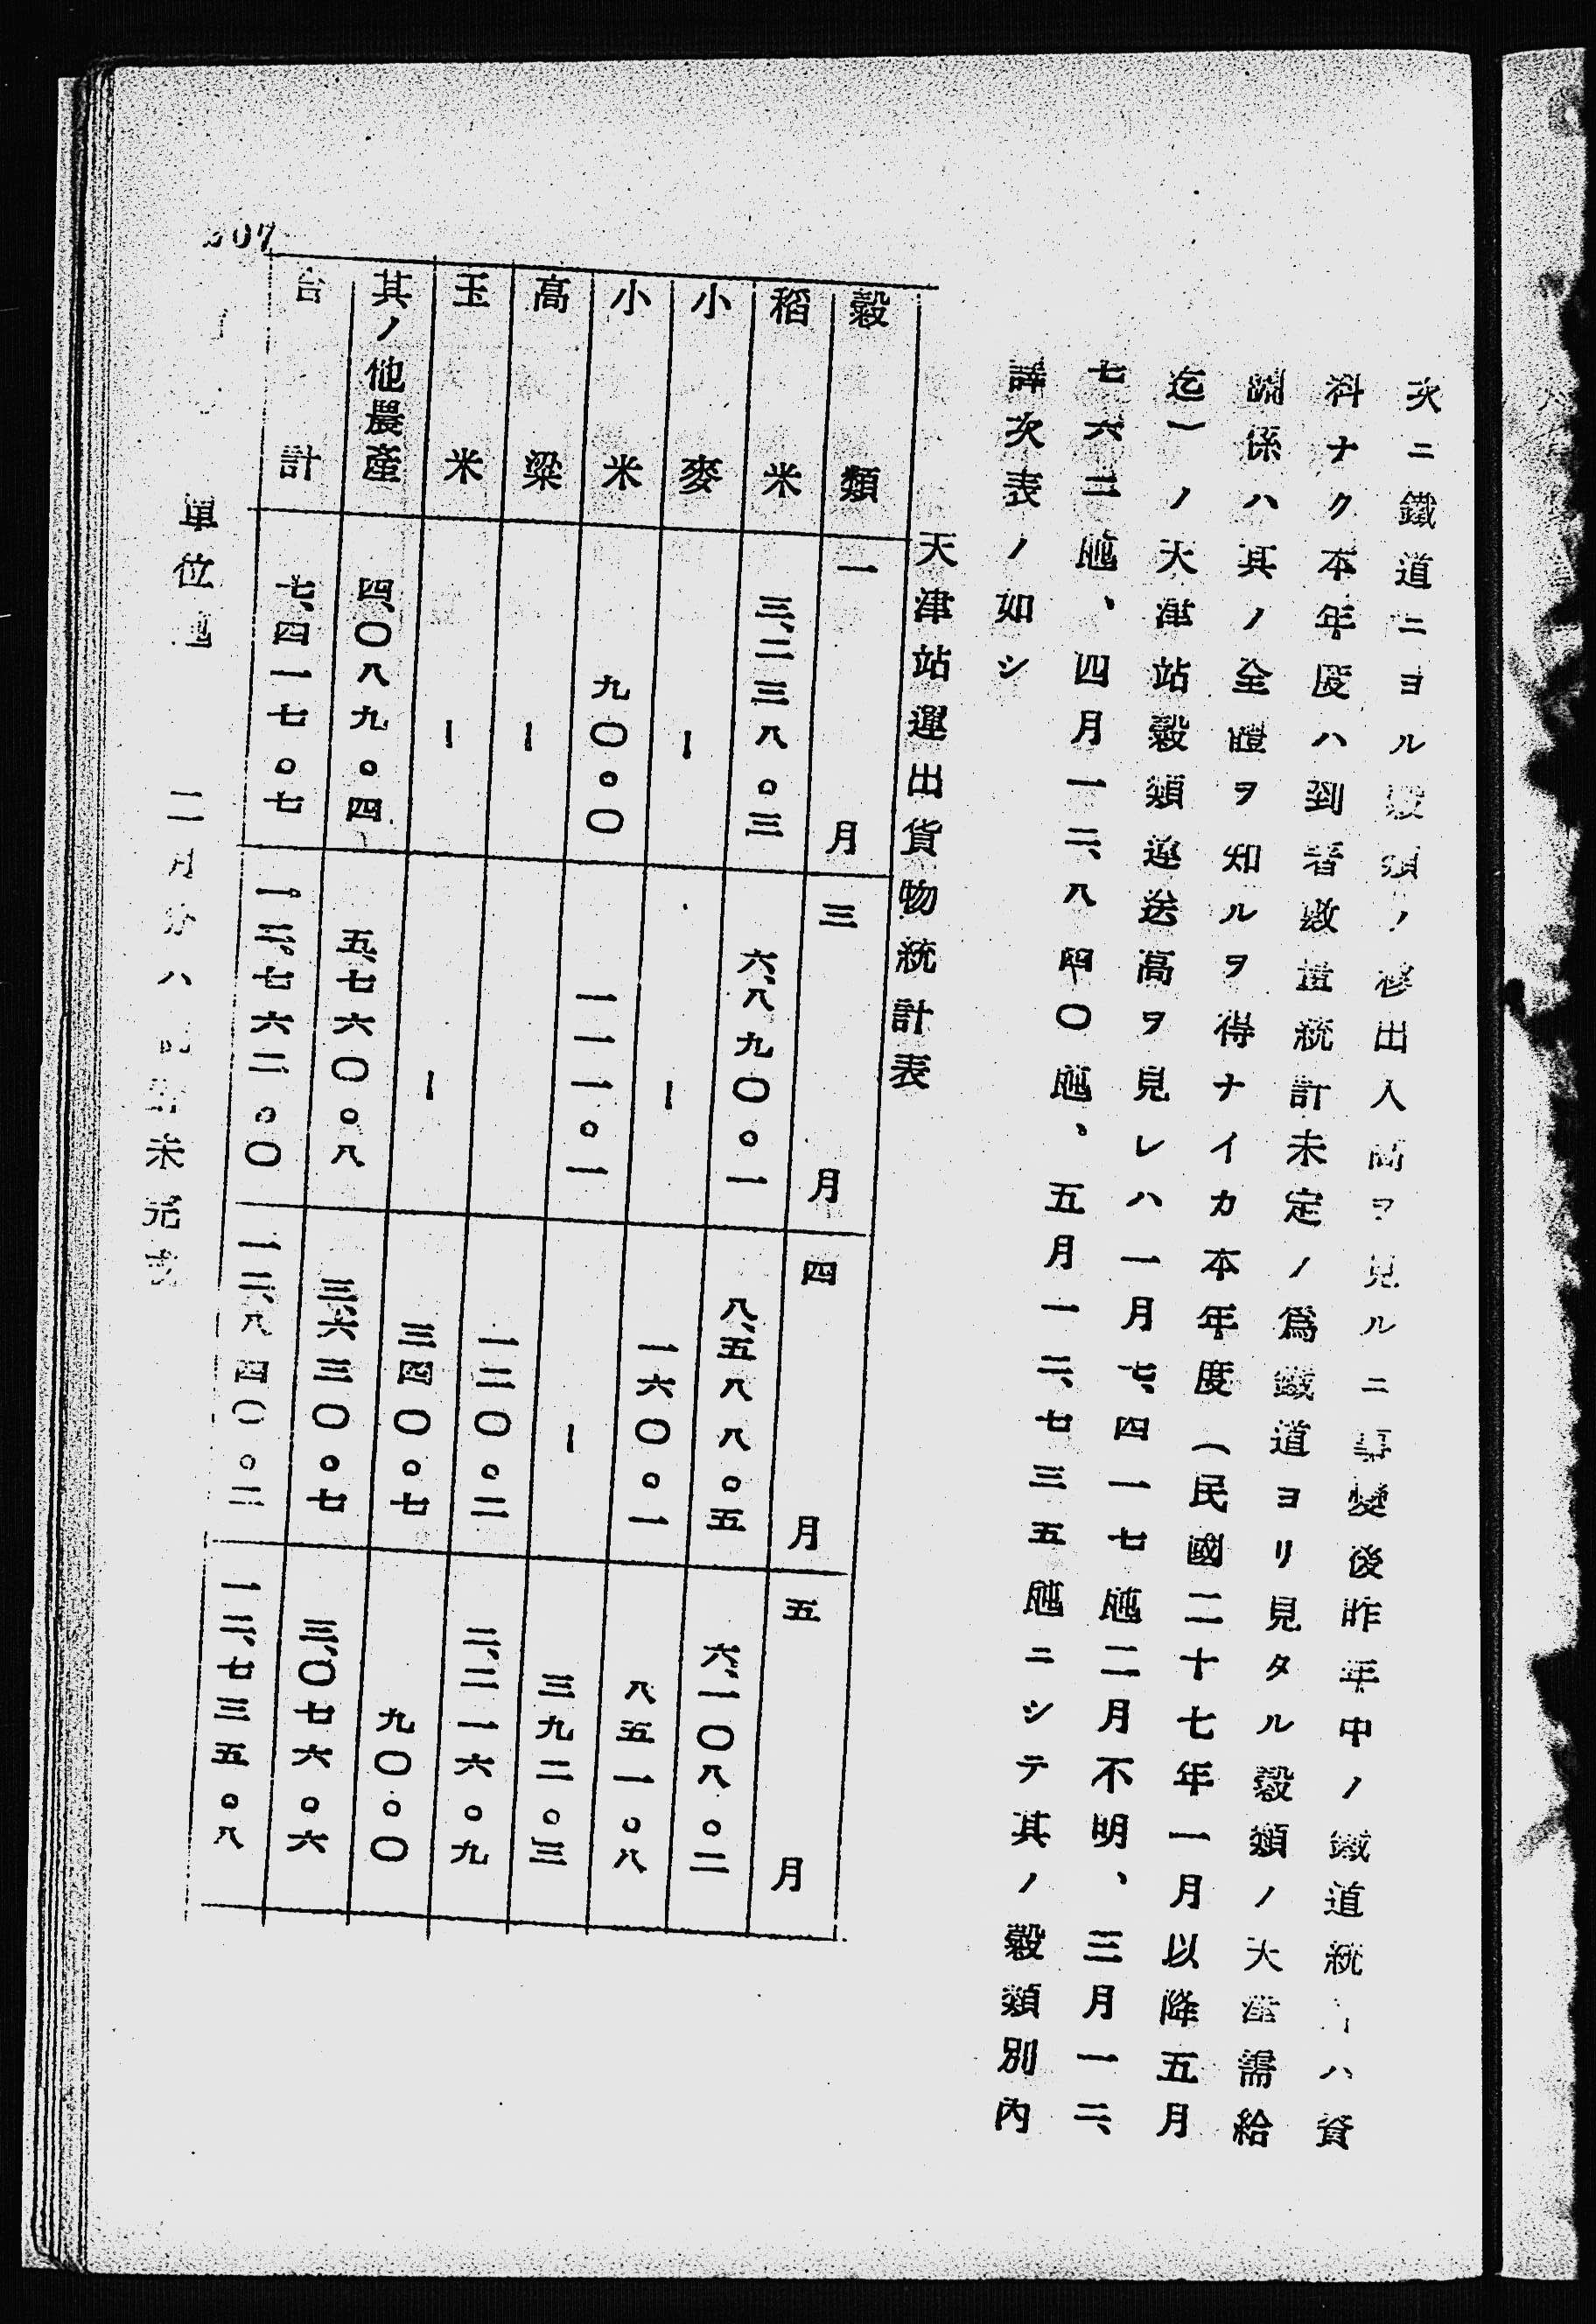 次ニ鐵道ニヨル穀類ノ移出入高ヲ見ルニ事變後昨年中ノ鐵道統計ハ資
料ナク本年度ハ到着數量統計未定ノ爲鐵道ヨリ見タル穀類ノ天津需給
關係ハ其ノ全體ヲ知ルヲ得ナイカ本年度(民國二十七年一月以降五月
迄)ノ天津站穀類運送高ヲ見レハ一月七、四一七瓲二月不明、三月一三、
七六二瓲、四月一二、八四〇瓲、五月一三、七三五瓲ニシテ其ノ穀類別內
譯次表ノ如シ
天津站運出貨物統計表
穀類 一月 三月 四月 五月
稻米 三、二三八。三 六、八九〇。一 八、五八八。五 六、一〇八。二
小麥 ー ー 一六〇。一 八五一。八
小米 九〇。〇 一一一。一 ー 三九二。三
高粱 ー 一二〇。二 三、二一六。九
玉米 ー ー 三四〇。七 九〇。〇
其ノ他農產 四、〇八九。四 五、七六〇。八 三、六三〇。七 三、〇七六。六
合計 七、四一七。七 一三、七六二。〇 一二、八四〇。二 一三、七三五。八
單位瓲 二月分ハ 未完
207